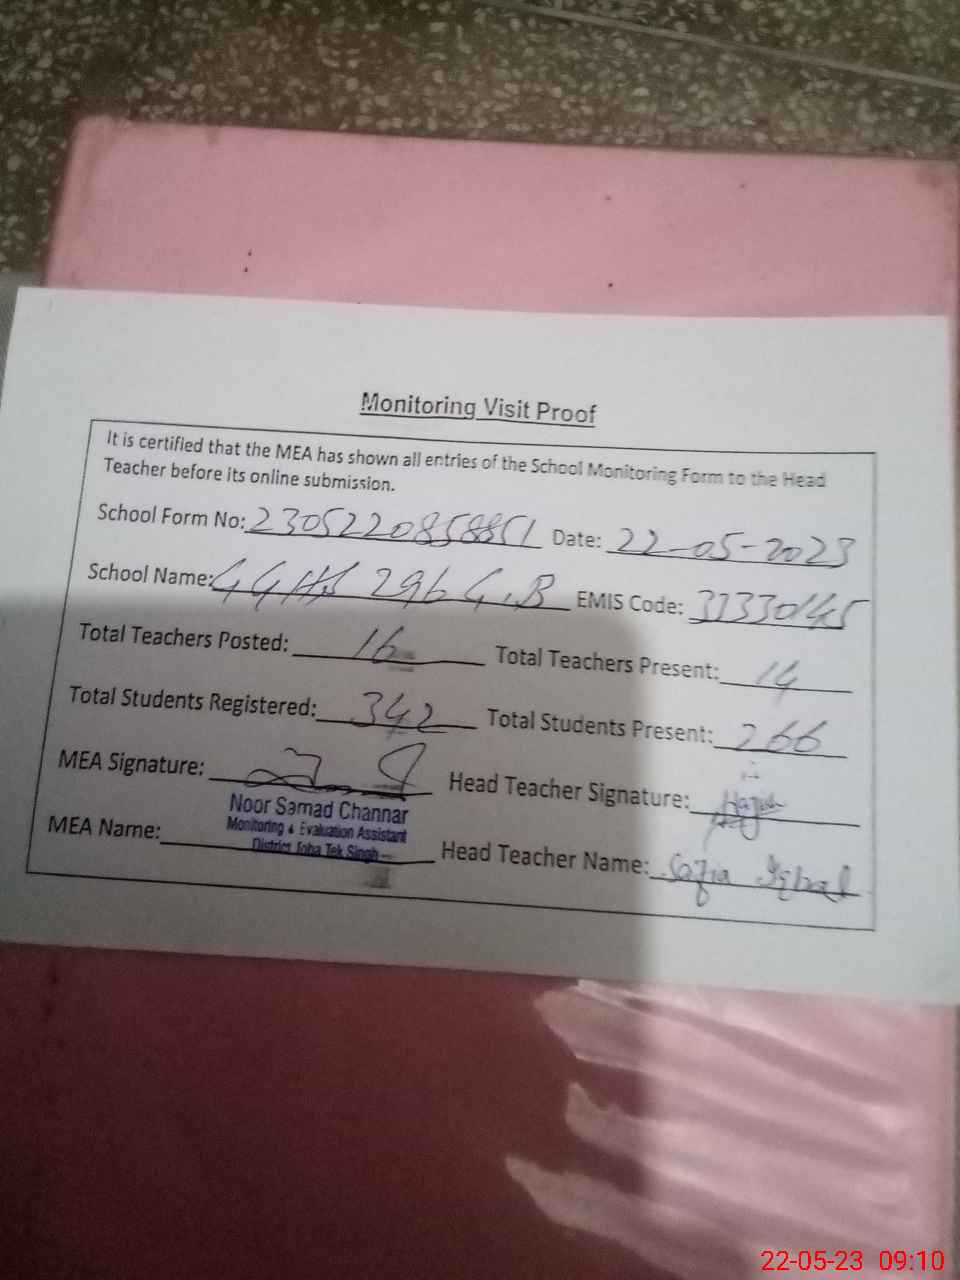 Monitoring Visit Proof
It is certified that the MEA has shown all entries of the School Monitoring Form to the Head
Teacher before its online submission.
School Form No: 2305220858851 Date: 22-05-2023
School Name: GGHS 296 G.B EMIS Code: 31330145
Total Teachers Posted: 16 Total Teachers Present: 14
Total Students Registered: 342 Total Students Present: 266
MEA Signature: Head Teacher Signature:
Noor Samad Channar
Monitoring & Evaluation Assistant
District Toba Tek Singh
MEA Name: Head Teacher Name: Safia Iqbal
22-05-23 09:10